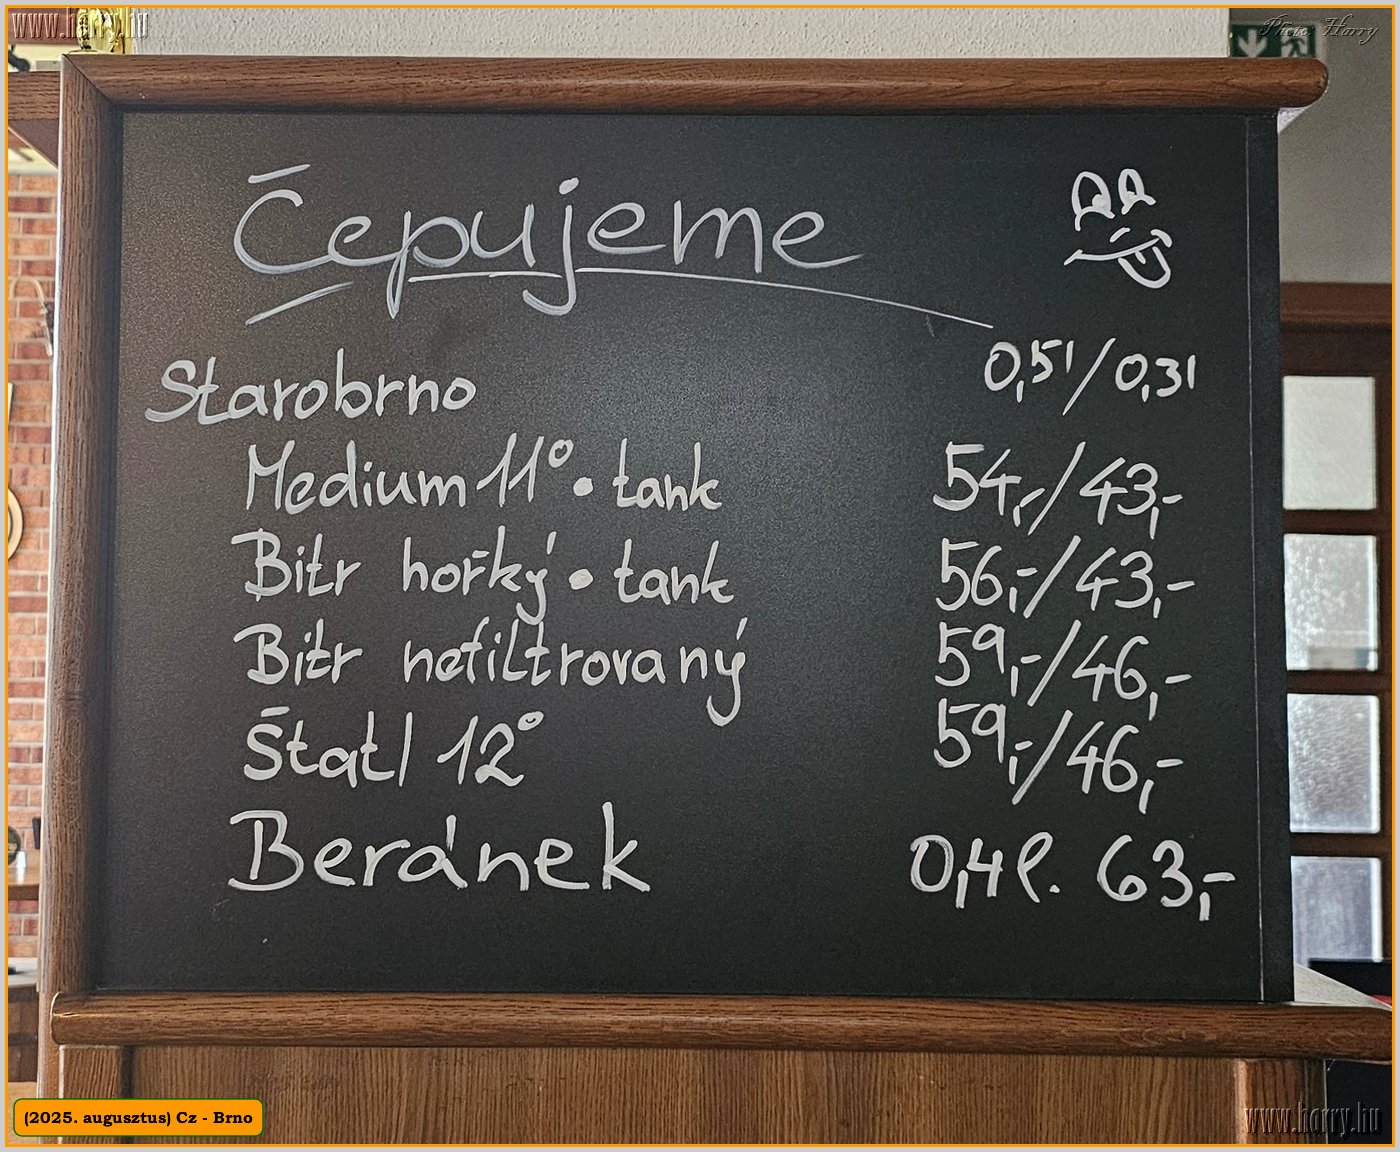 www.harry.hu
Photo: Harry
Čepujeme
Starobrno 0,5l/0,3l
Medium 11° • tank 54,-/43,-
Bitr hořký • tank 56,-/43,-
Bitr nefiltrovaný 59,-/46,-
Štatl 12° 59,-/46,-
Beránek 0,4l. 63,-
(2025. augusztus) Cz - Brno
www.harry.hu